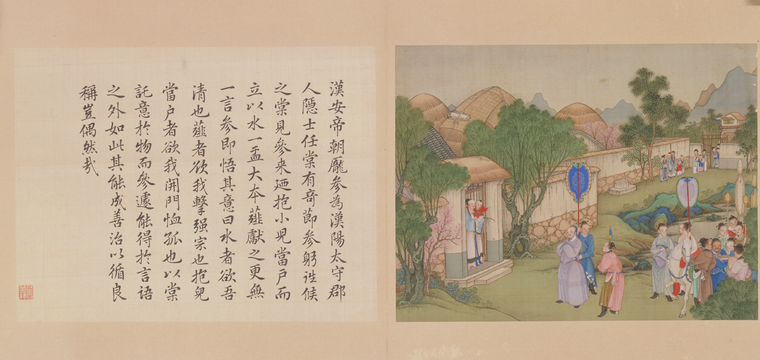 漢安帝朝龐參為漢陽太守郡
人隱士任棠有奇節參躬詣候
之棠見參來迺抱小兒當戶而
立以水一盂大本薤獻之更無
一言參即悟其意曰水者欲吾
清也薤者欲我擊强宗也抱兒
當户者欲我開門恤孤也以棠
託意於物而參遽能得於言語
之外如此其能成善治以循良
稱豈偶然哉